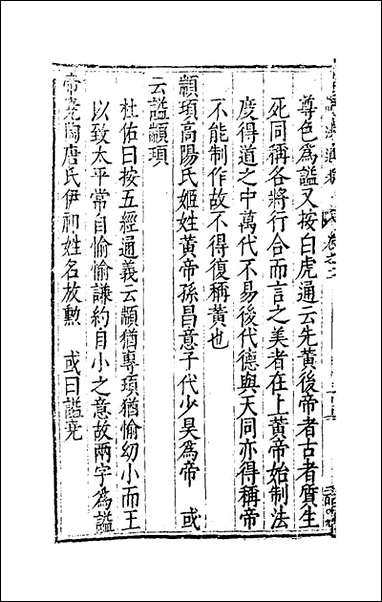 尊色爲謚又按白虎通云先黃後帝者古者質生
死同稱各將行合而言之美者在上黃帝始制法
度得道之中萬代不易後代德與天同亦得稱帝
不能制作故不得復稱黃也
顓頊高陽氏姬姓黃帝孫昌意子代少昊爲帝 或
云謚顓頊
杜佑曰按五經通義云顓猶專頊猶愉幼小而王
以致太平常自愉愉謙約自小之意故兩字爲謚
帝堯陶唐氏伊祁姓名放勲 或曰謚堯